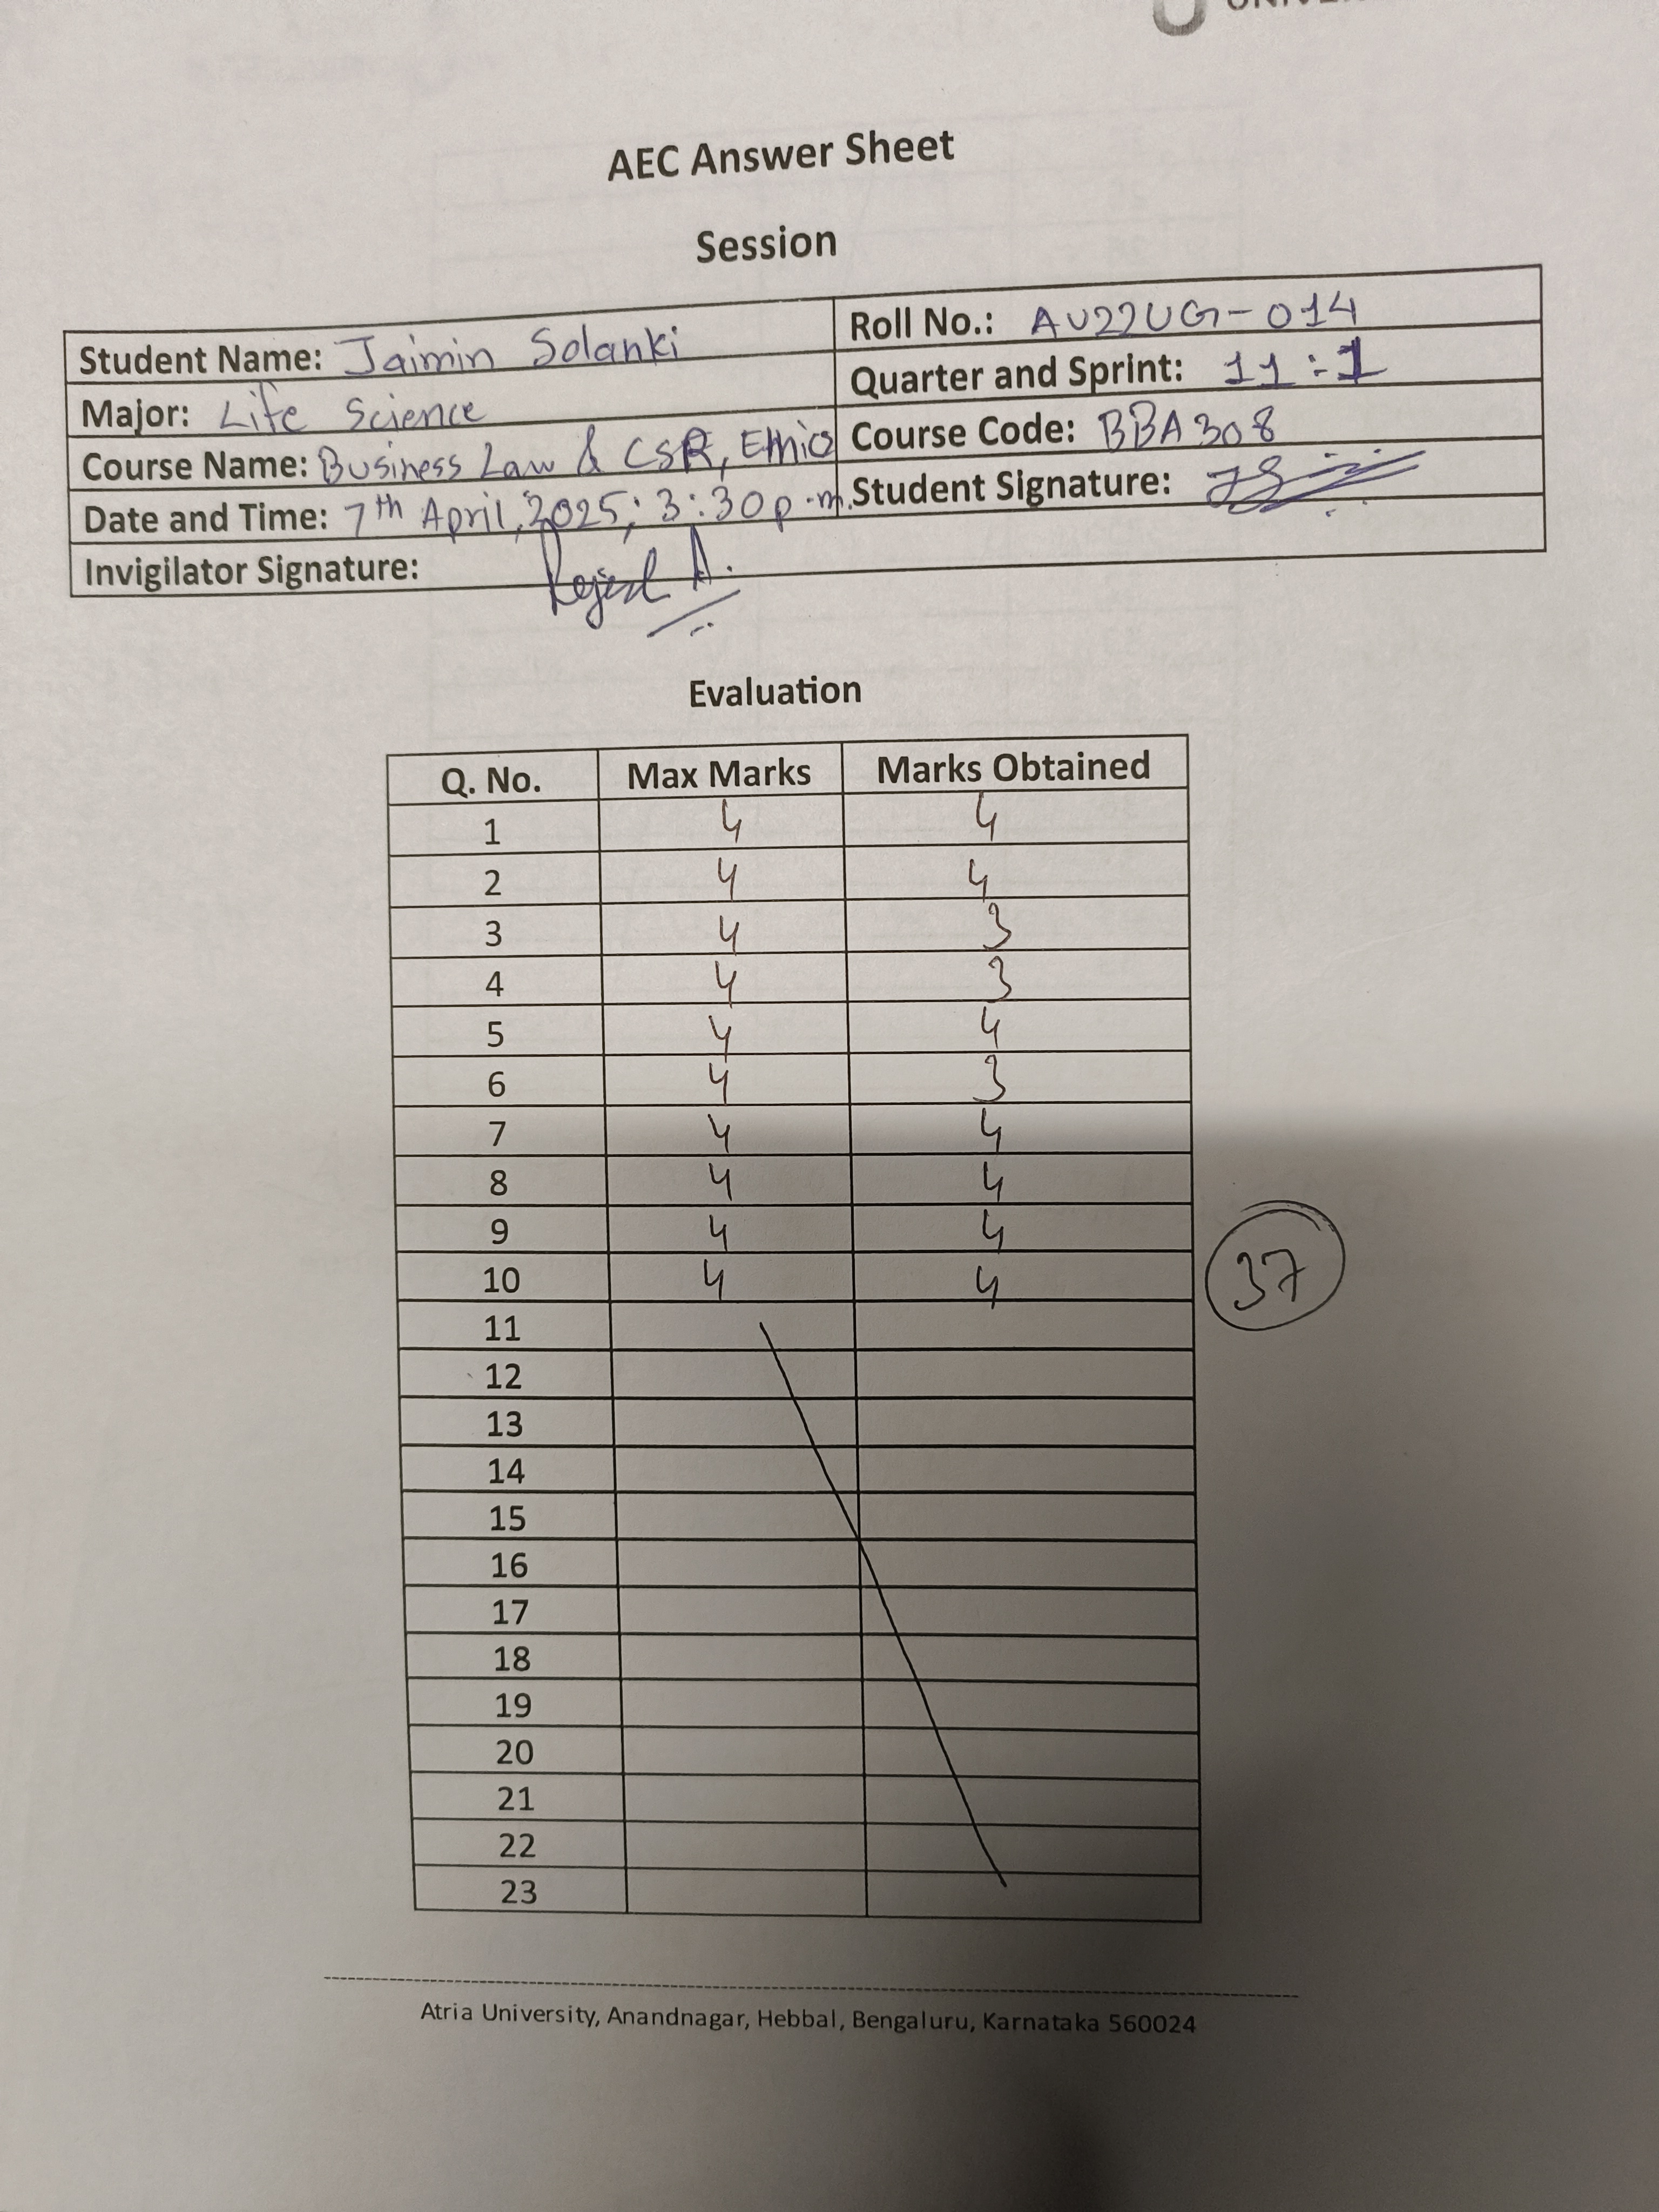 AEC Answer Sheet
Session
Student Name: Jaimin Solanki
Roll No.: AU22UG-014
Major: Life Science
Quarter and Sprint: 11:1
Course Name: Business Law & CSR, Ethics
Course Code: BBA308
Date and Time: 7th April, 2025; 3:30p.m.
Student Signature: JS
Invigilator Signature:
Evaluation
Q. No. Max Marks Marks Obtained
1 4 4
2 4 4
3 4 3
4 4 3
5 4 4
6 4 3
7 4 4
8 4 4
9 4 4
10 4 4
37
11
12
13
14
15
16
17
18
19
20
21
22
23
Atria University, Anandnagar, Hebbal, Bengaluru, Karnataka 560024